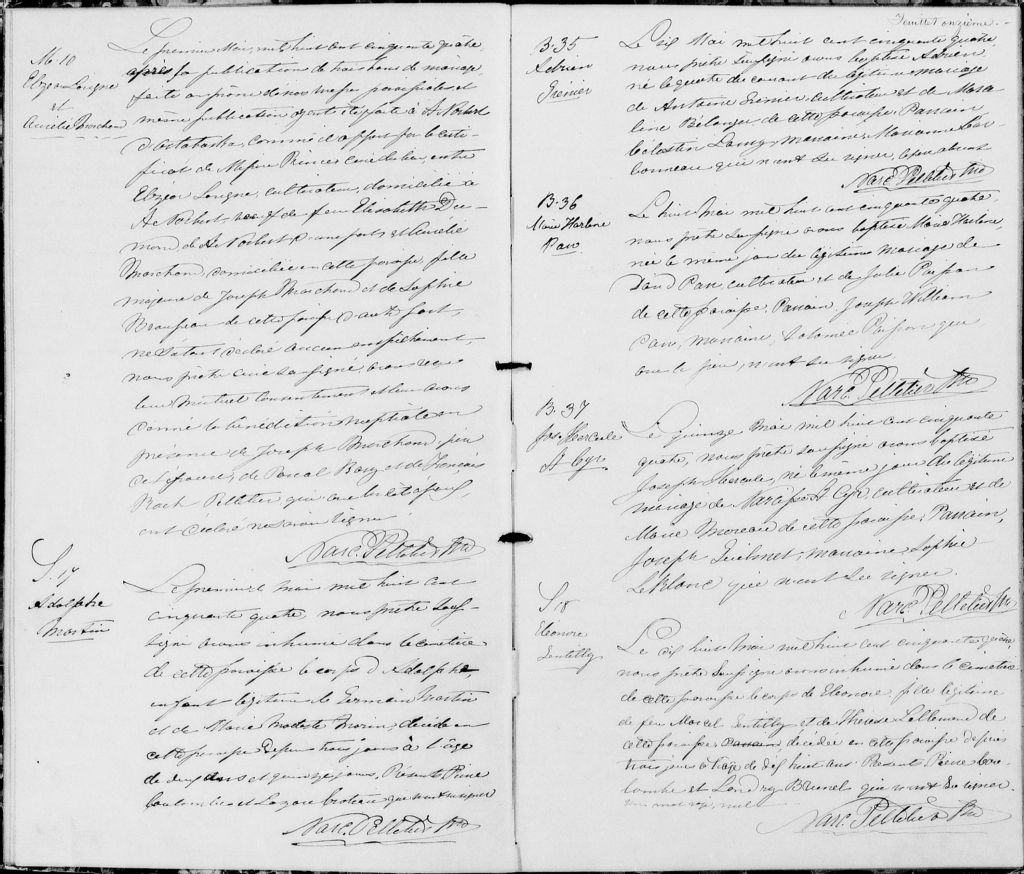 M. 10
Elzéar Lavigne
et
Aurélie Marchand
Le premier Mai, mil huit cent cinquante quatre
après la publication de trois bans de mariage,
faite au prône de nos messes paroissiales et
même publication ayant été faite à St Norbert
d'Arthabaska, comme il appert par le certi-
ficat de Messire Prince curé du lieu, entre
Elzéar Lavigne, cultivateur, domicilié à
St Norbert, veuf de feu Elisabeth
de St Norbert d'une part; et Aurélie
Marchand, domiciliée en cette paroisse, fille
majeure de Joseph Marchand et de Sophie
de cette paroisse d'autre part,
ne s'étant déclaré aucun empêchement,
nous prêtre curé soussigné, avons reçu
leur mutuel consentement et leur avons
donné la bénédiction nuptiale en
présence de Joseph Marchand, père
de l'épouse, de Pascal et de François
Roch Peltier qui, ainsi que les époux,
ont déclaré ne savoir signer.
Narc. Pelletier Ptre
S. 17
Adolphe
Martin
Le premier mai mil huit cent
cinquante quatre, nous prêtre sous-
signé avons inhumé dans le cimetière
de cette paroisse le corps d'Adolphe,
enfant légitime de Germain Martin
et de Marie Modeste Morin, décédé en
cette paroisse depuis trois jours à l'âge
de deux ans et quinze jours. Présents Pierre
Coulombe et Lazare Croteau qui n'ont su signer
Narc. Pelletier Ptre
Feuillet onzième.
B. 35
Adrien
Grenier
Le six Mai mil huit cent cinquante quatre
nous prêtre soussigné avons baptisé Adrien
né le quatre du courant du légitime mariage
de Antoine Grenier, cultivateur et de Marce-
line Bélanger de cette paroisse. Parrain
Célestin Lamy; marraine, Marianne Char-
bonneau qui n'ont su signer, le père absent
Narc. Pelletier Ptre
B. 36
Marie Harline
Pau
Le huit Mai mil huit cent cinquante quatre,
nous prêtre soussigné avons baptisé Marie Harline,
née le même jour du légitime mariage de
David Pau, cultivateur et de Julie
de cette paroisse. Parrain, Joseph William
Pau, marraine, Salomée qui,
ainsi que le père, n'ont su signer.
Narc. Pelletier Ptre
B. 37
Jos. Hercule
St Cyr
Le quinze Mai mil huit cent cinquante
quatre, nous prêtre soussigné avons baptisé
Joseph Hercule, né le même jour du légitime
mariage de Narcisse St Cyr, cultivateur et de
Marie Moreau de cette paroisse. Parrain,
Joseph; marraine, Sophie
LeBlanc qui n'ont su signer.
Narc. Pelletier Ptre
S 18
Eleonore
Gentilly
Le dix huit Mai mil huit cent cinquante quatre,
nous prêtre soussigné avons inhumé dans le cimetière
de cette paroisse le corps de Eleonore, fille légitime
de feu Marcel Gentilly et de Thérèse Lallemand de
cette paroisse, Parrain, décédée en cette paroisse depuis
trois jours à l'âge de dix huit ans. Présents Pierre Cou-
lombe et Landry Brunel qui n'ont su signer.
un mot rayé, nul
Narc. Pelletier Ptre